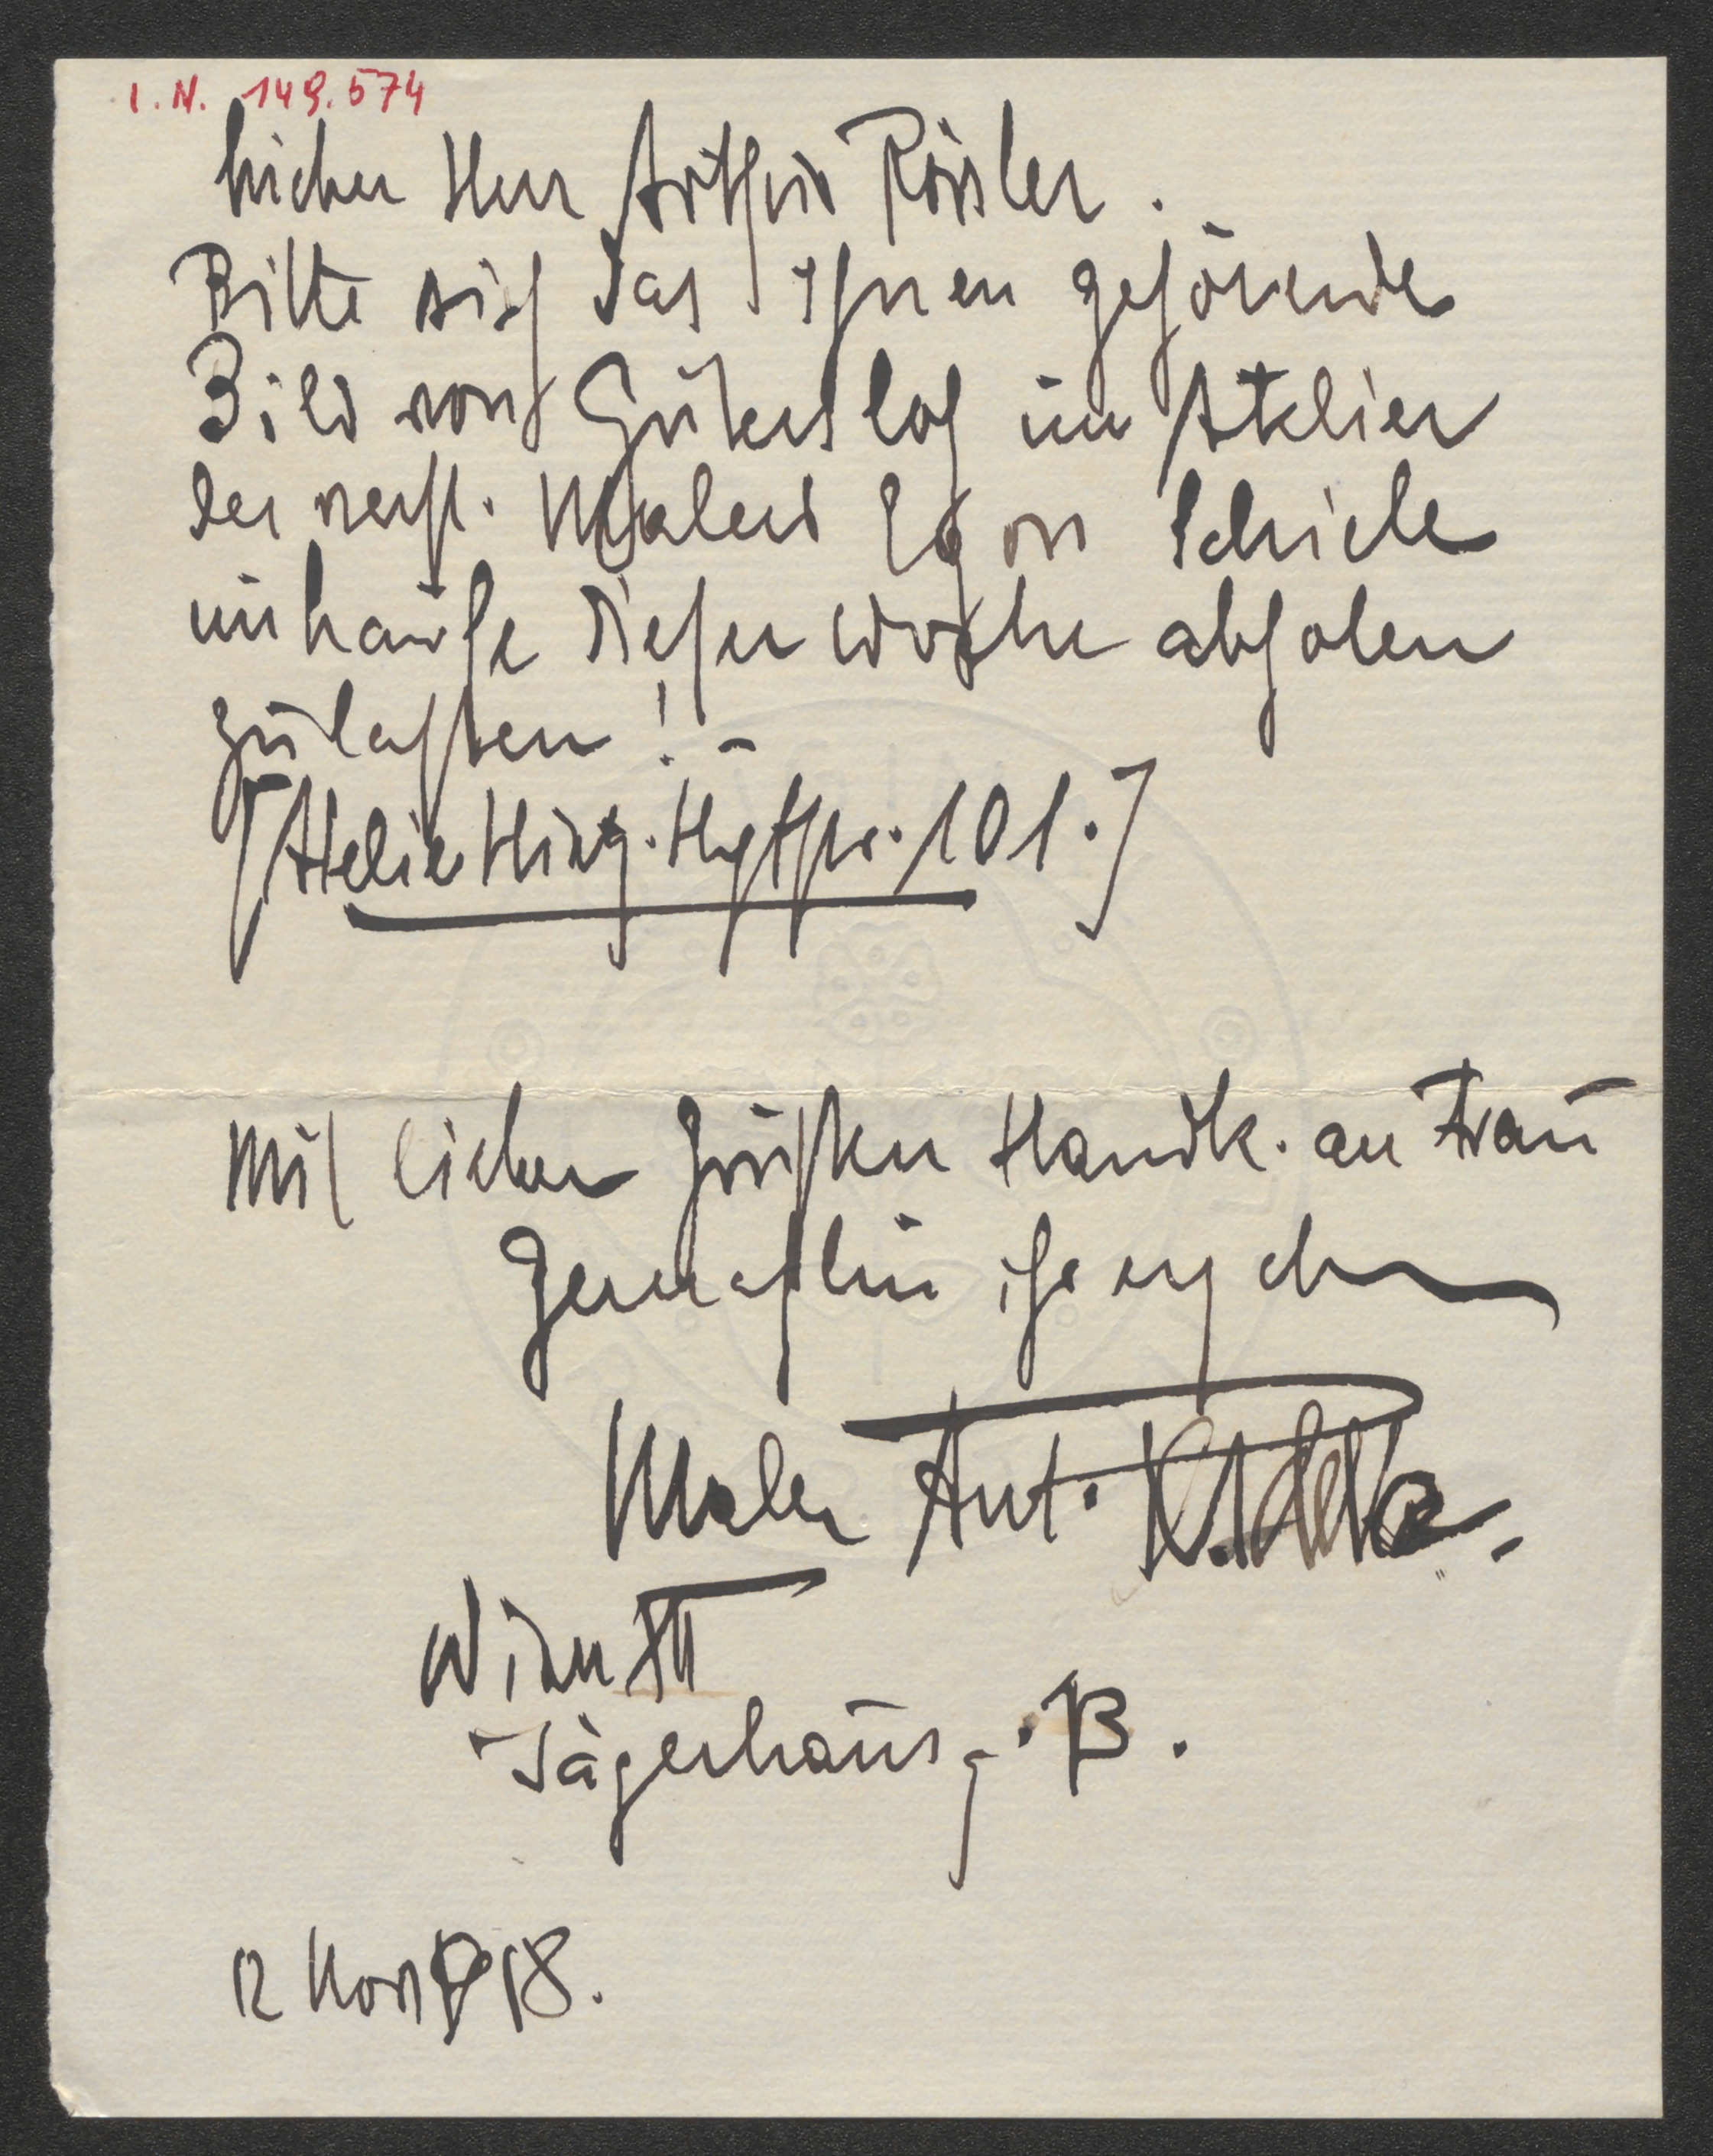 I.N. 149.574
Lieber Herr Arthur Rössler.
Bitte sich das Ihnen gehörende
Bild von Gütersloh im Atelier
des verst. Malers Egon Schiele
im Laufe dieser Woche abholen
zu lassen! –
[Atelier Hitzg. Hptstr. 101.]
Mit lieben Grüssen Handk. an Frau
Gemahlin ihr erg
Maler Ant.
Wien XII
Jägerhausg. 13.
12 Nov 918.